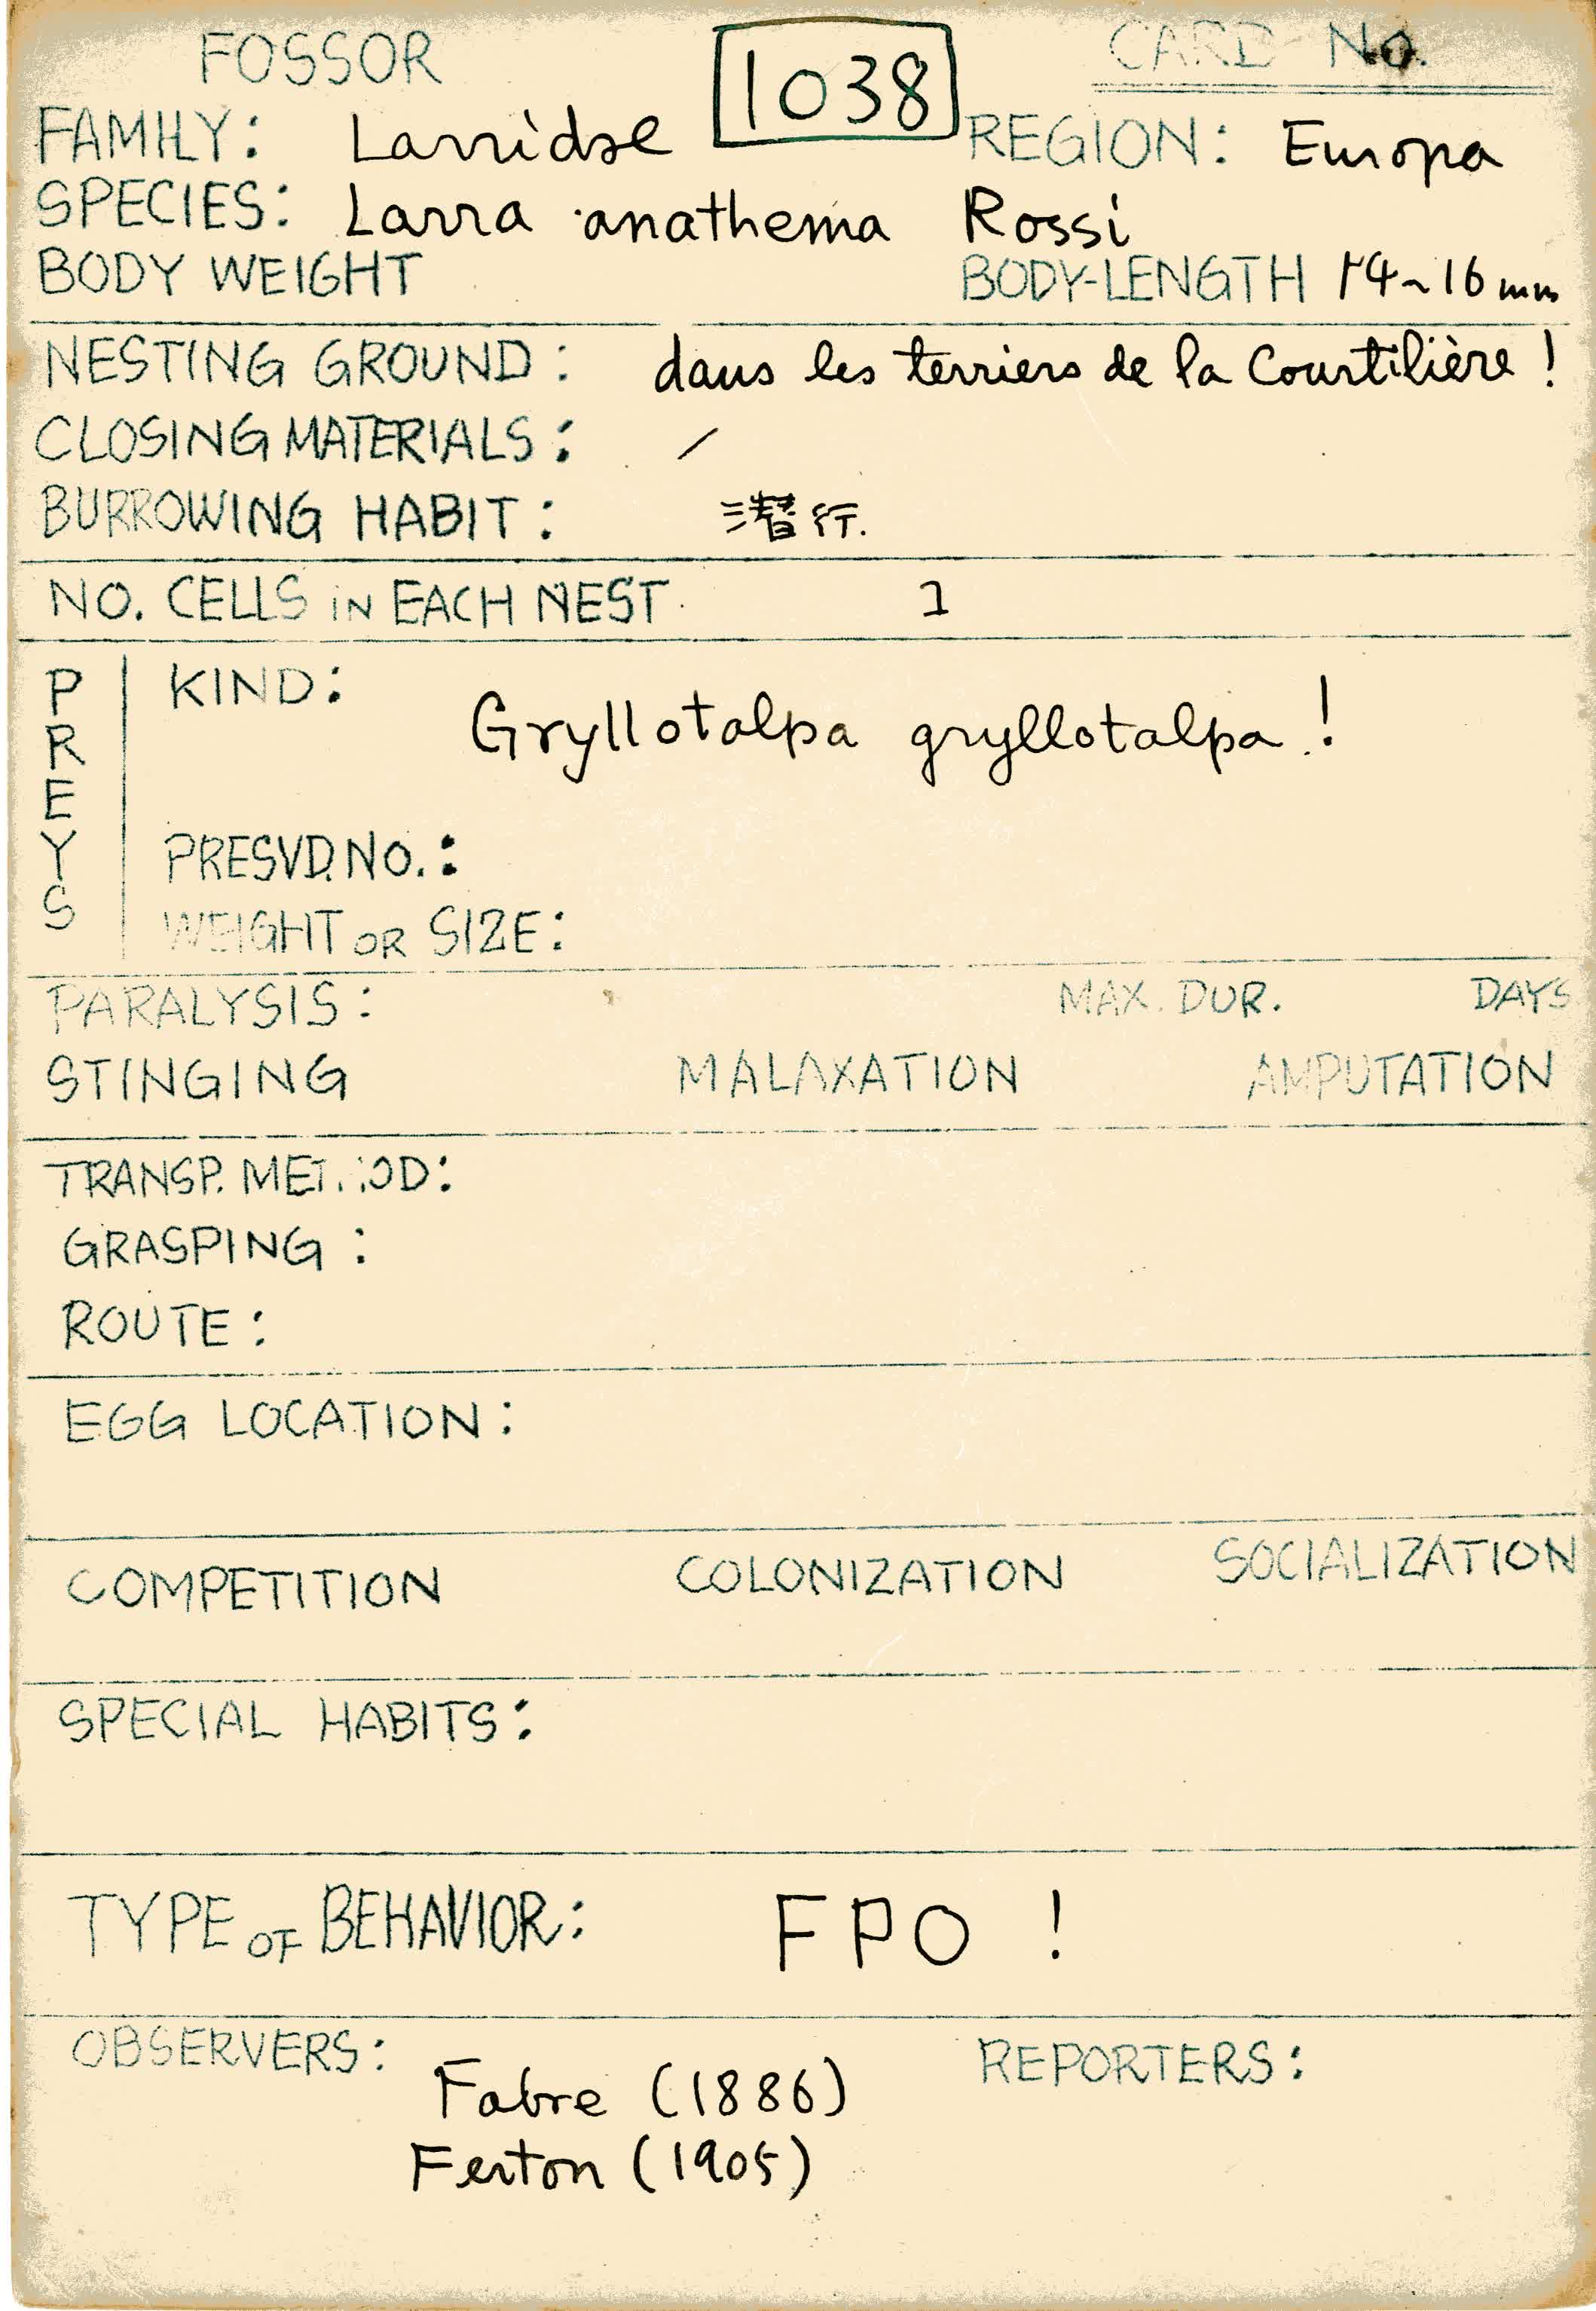 FOSSOR 1038 CARD No.
FAMILY: Larridae REGION: Europa
SPECIES: Larra anathema Rossi
BODY WEIGHT BODY-LENGTH 14~16 mm
NESTING GROUND: dans les terriers de la Courtilière!
CLOSING MATERIALS: /
BURROWING HABIT: 潜行.
NO. CELLS IN EACH NEST 1
PREYS
KIND: Gryllotalpa gryllotalpa!
PRESVD. NO.:
WEIGHT OR SIZE:
PARALYSIS: MAX. DUR. DAYS
STINGING MALAXATION AMPUTATION
TRANSP. METHOD:
GRASPING:
ROUTE:
EGG LOCATION:
COMPETITION COLONIZATION SOCIALIZATION
SPECIAL HABITS:
TYPE OF BEHAVIOR: FPO!
OBSERVERS: REPORTERS:
Fabre (1886)
Ferton (1905)